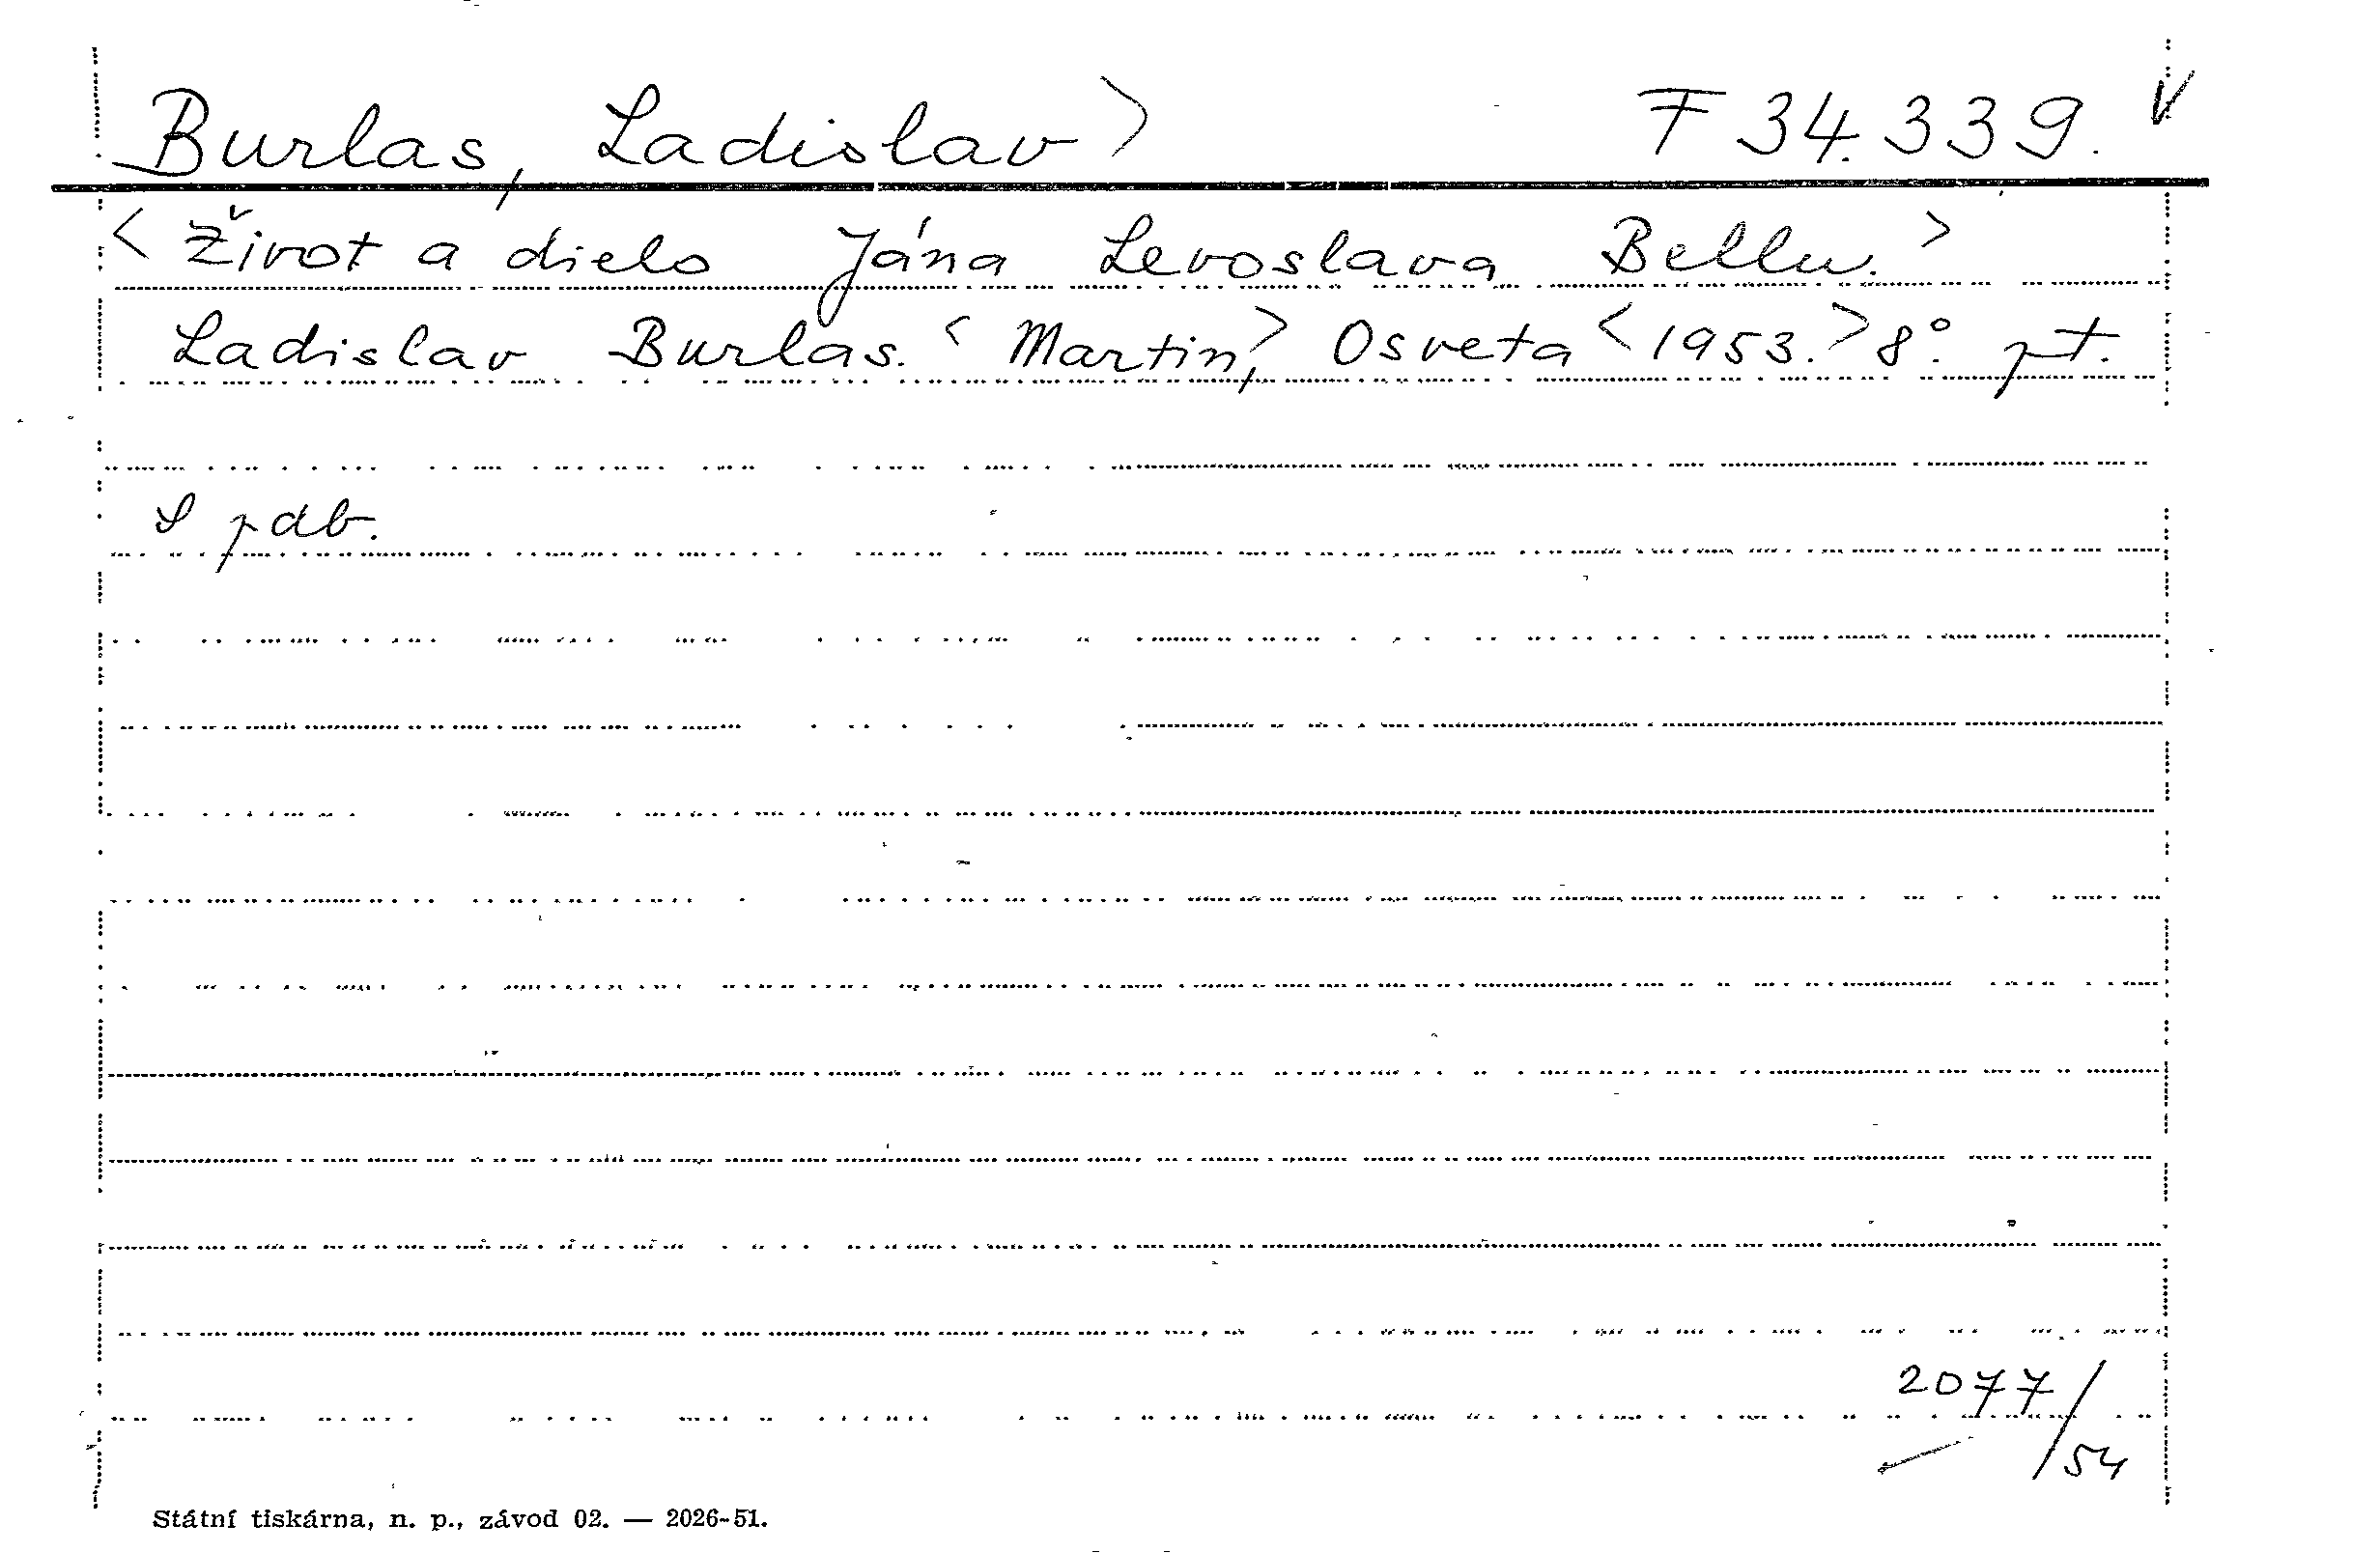 Burlas, Ladislav> F 34.339. V
<Život a dielo Jána Levoslava Bellu.>
Ladislav Burlas. <Martin,> Osveta <1953.> 8°. pt.
S pdb.
2077/
/54
Státní tiskárna, n. p., závod 02. — 2026-51.